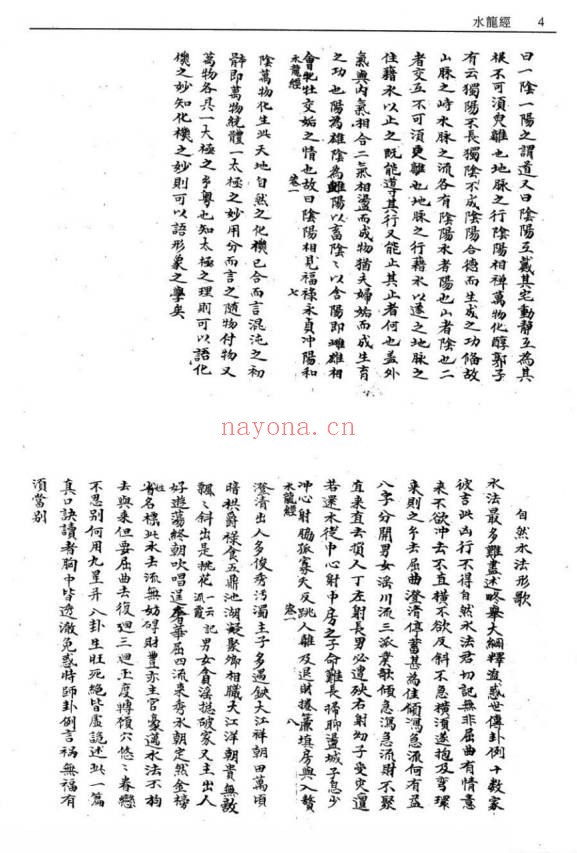 水龍經 4
曰一陰一陽之謂道又曰陰陽互藏其宅動靜互為其
根不可須臾離也地脉之行陰陽相禅萬物化醇郭子
有云獨陽不長獨陰不成陰陽合德而生成之功俻故
山脉之峙水脉之流各有陰陽水者陽也山者陰也二
者交互不可須更離也地脉之行藉水以遂之地脉之
住藉水以止之既能導其行又能止其止者何也盖外
氣與內氣相合二氣相盪而成物猶夫婦姤而成生育
之功也陽為雄陰為雌陽以畜陰〻以含陽即雌雄相
永龍經 卷一 七
會牝牡交姤之情也故曰陰陽相見福祿永貞冲陽和
陰萬物化生此天地自然之化機已合而言混沌之初
骵即萬物統體一太極之妙用分而言之隨物付物又
萬物各具一太極之也知太極之理則可以語化
機之妙知化機之妙則可以語形象之學矣
nayona.cn
自然水法形歌
水法最多難盡述畧舉大綱釋迷惑世傳卦例十数家
彼言此凶行不得自然水法君切記無非屈曲有情意
来不欲冲去不直横不欲反斜不急横須遶抱及弯環
来則之去屈曲澄清停蓄甚為佳傾瀉急流何有益
八字分開男女滛川流三派業歌傾急瀉急流財不聚
直来直去損人丁左射長男必遭殃右射㓜子受灾遭
若還水從中心射中房之子命難長掃脚盪城子息少
冲心射脇孤寡夭反跳人離及退財捲簾填房與入贅
水龍經 卷一 八
澄清出人多俊秀汚濁主子多遇鈌大江祥朝田萬頃
暗拱爵禄食五鼎池湖凝聚卿相職大江洋朝貴無敵
飄〻斜出是桃花 男女貪滛揔破家又主出人
流霞 一云記
好遊荡終朝吹唱逞奢華屈四流来秀水朝定然金榜
有名標此水去流無妨碍財豊亦主官豪邁水法不拘
去與来但要屈曲去復廻三廻五度轉頋穴悠〻眷戀
不忍别何用九星并八卦生旺死絕皆虛詭述此一篇
真口訣讀者胸中皆透澈免惑時師卦例言禍無福有
須當别